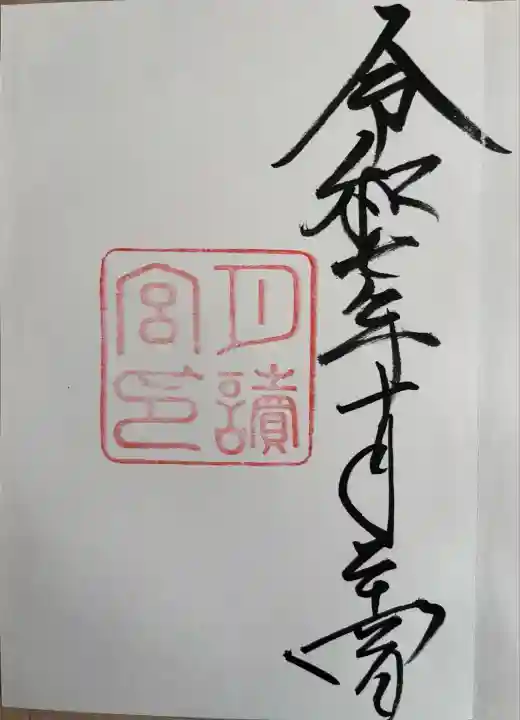 令和七年十月
月讀
宮印